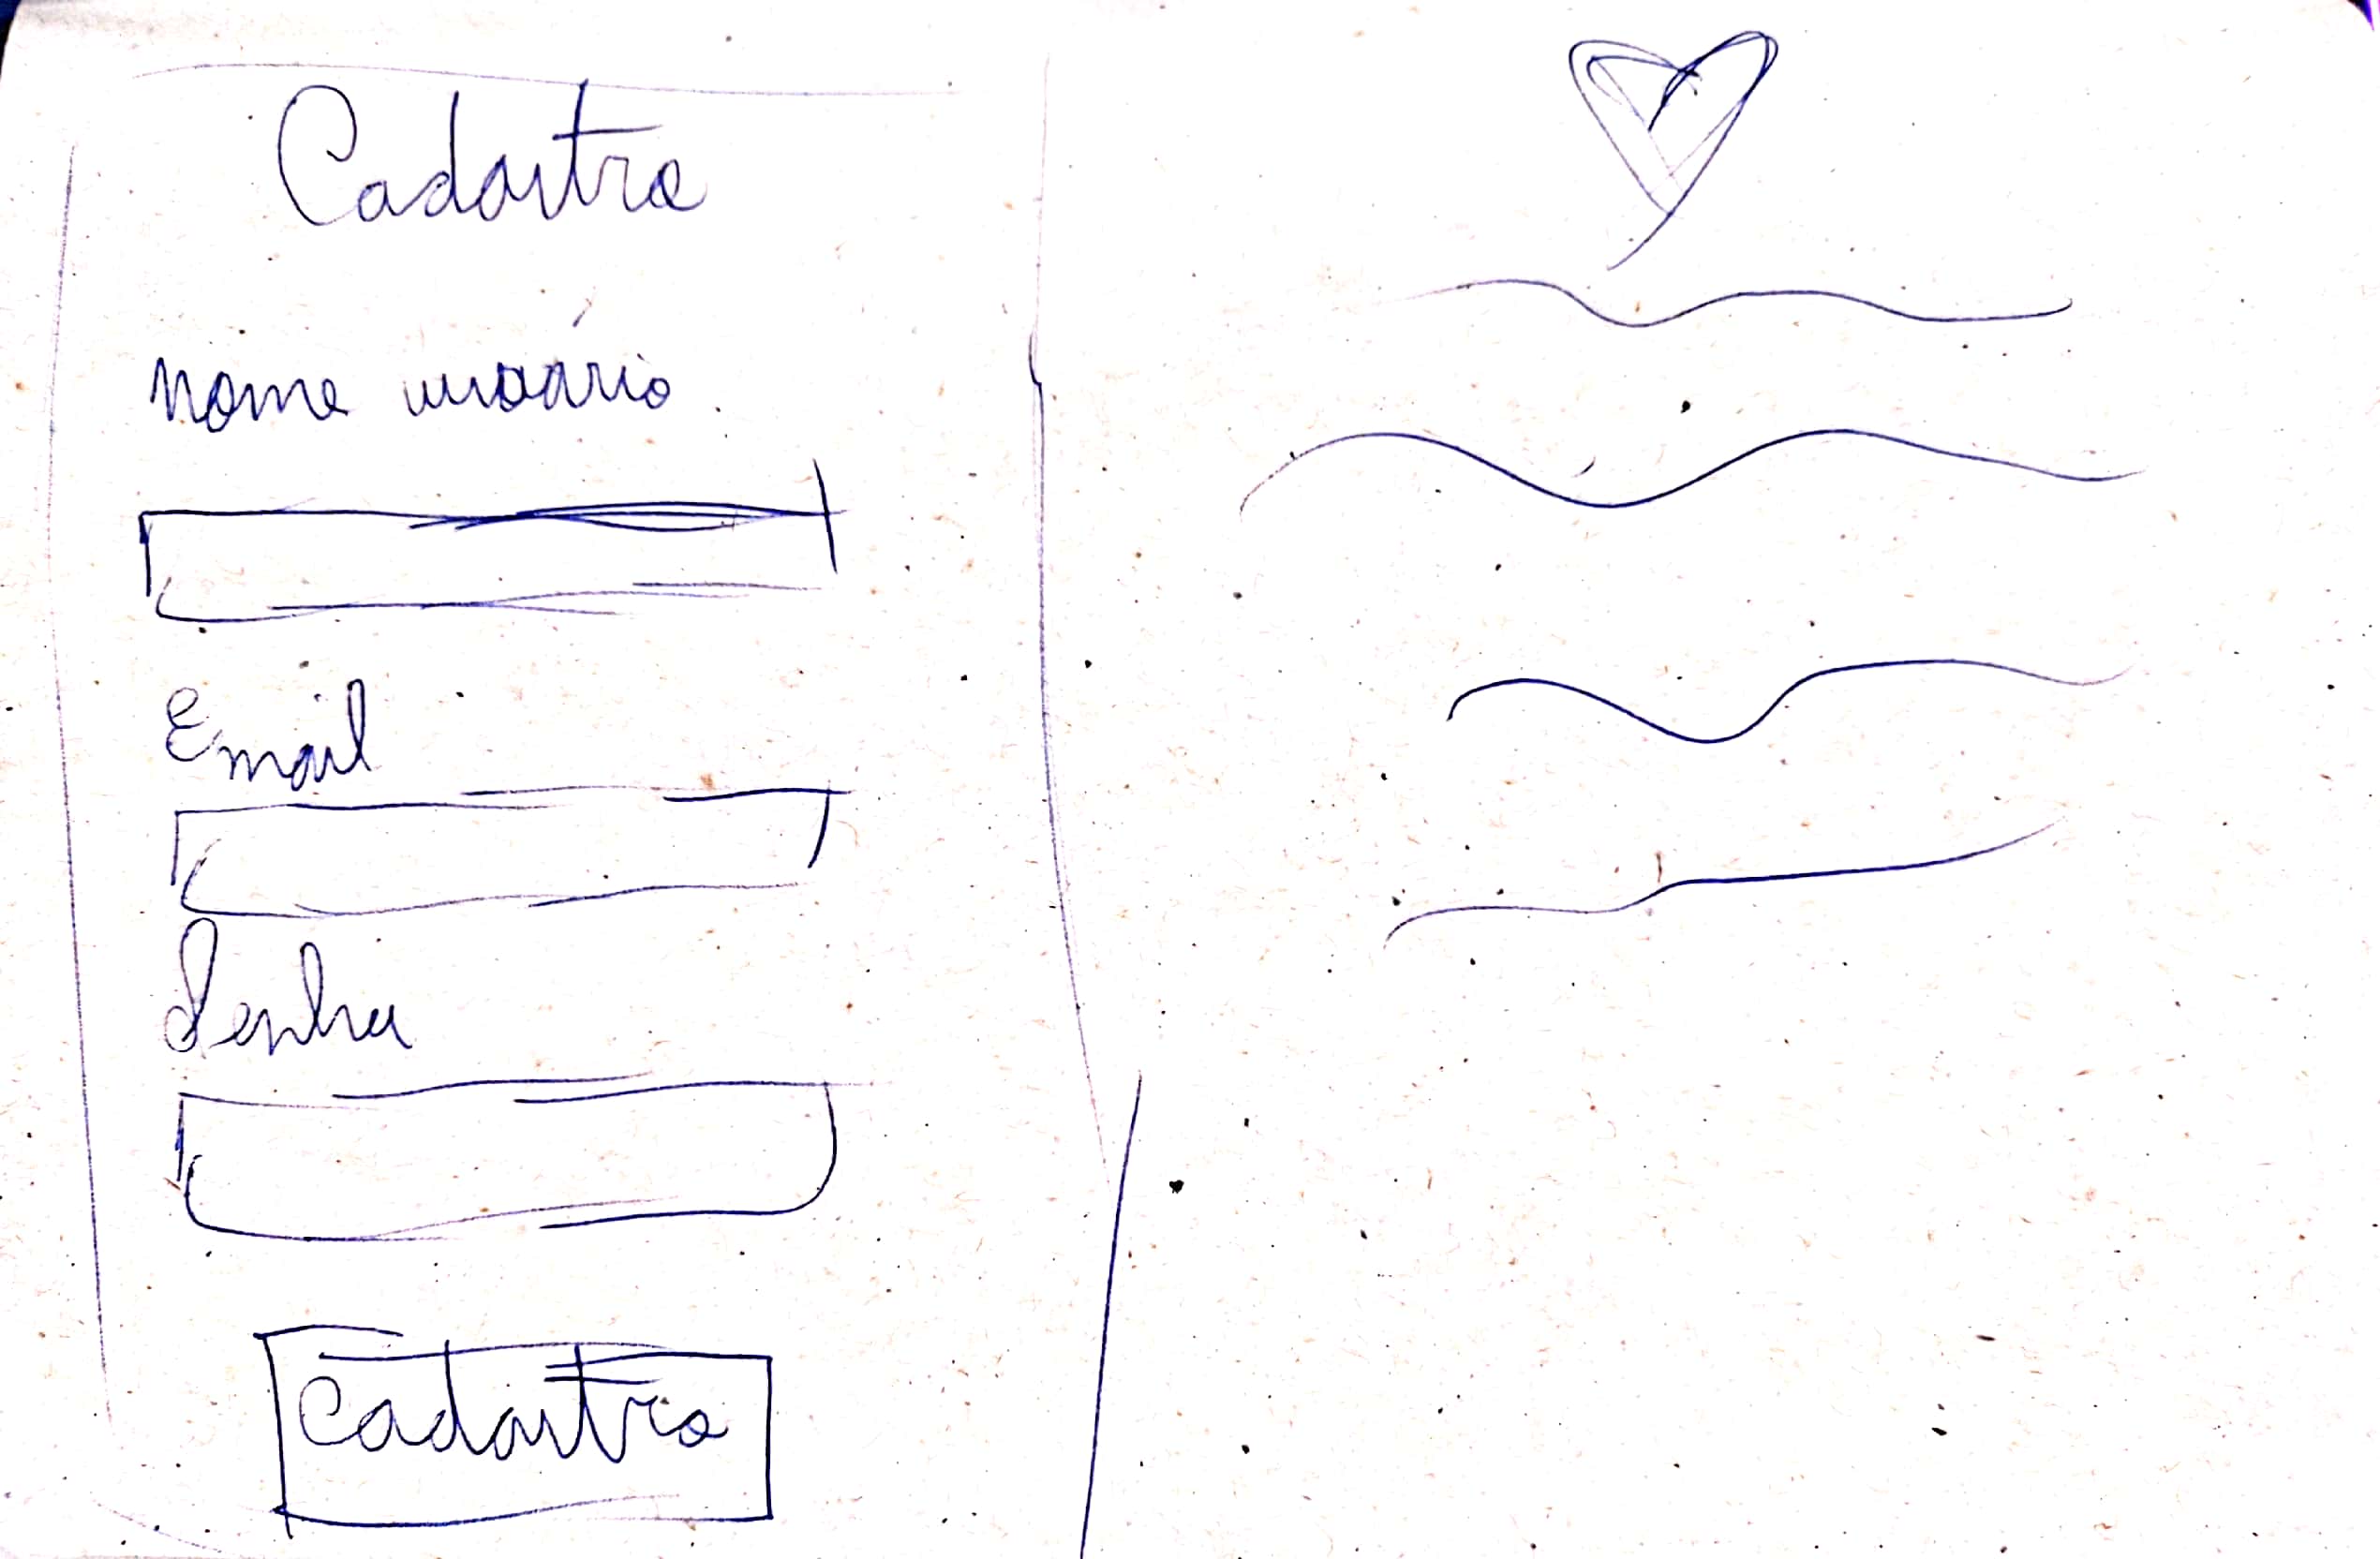 Cadastro
Nome usuário
Email
Senha
Cadastro